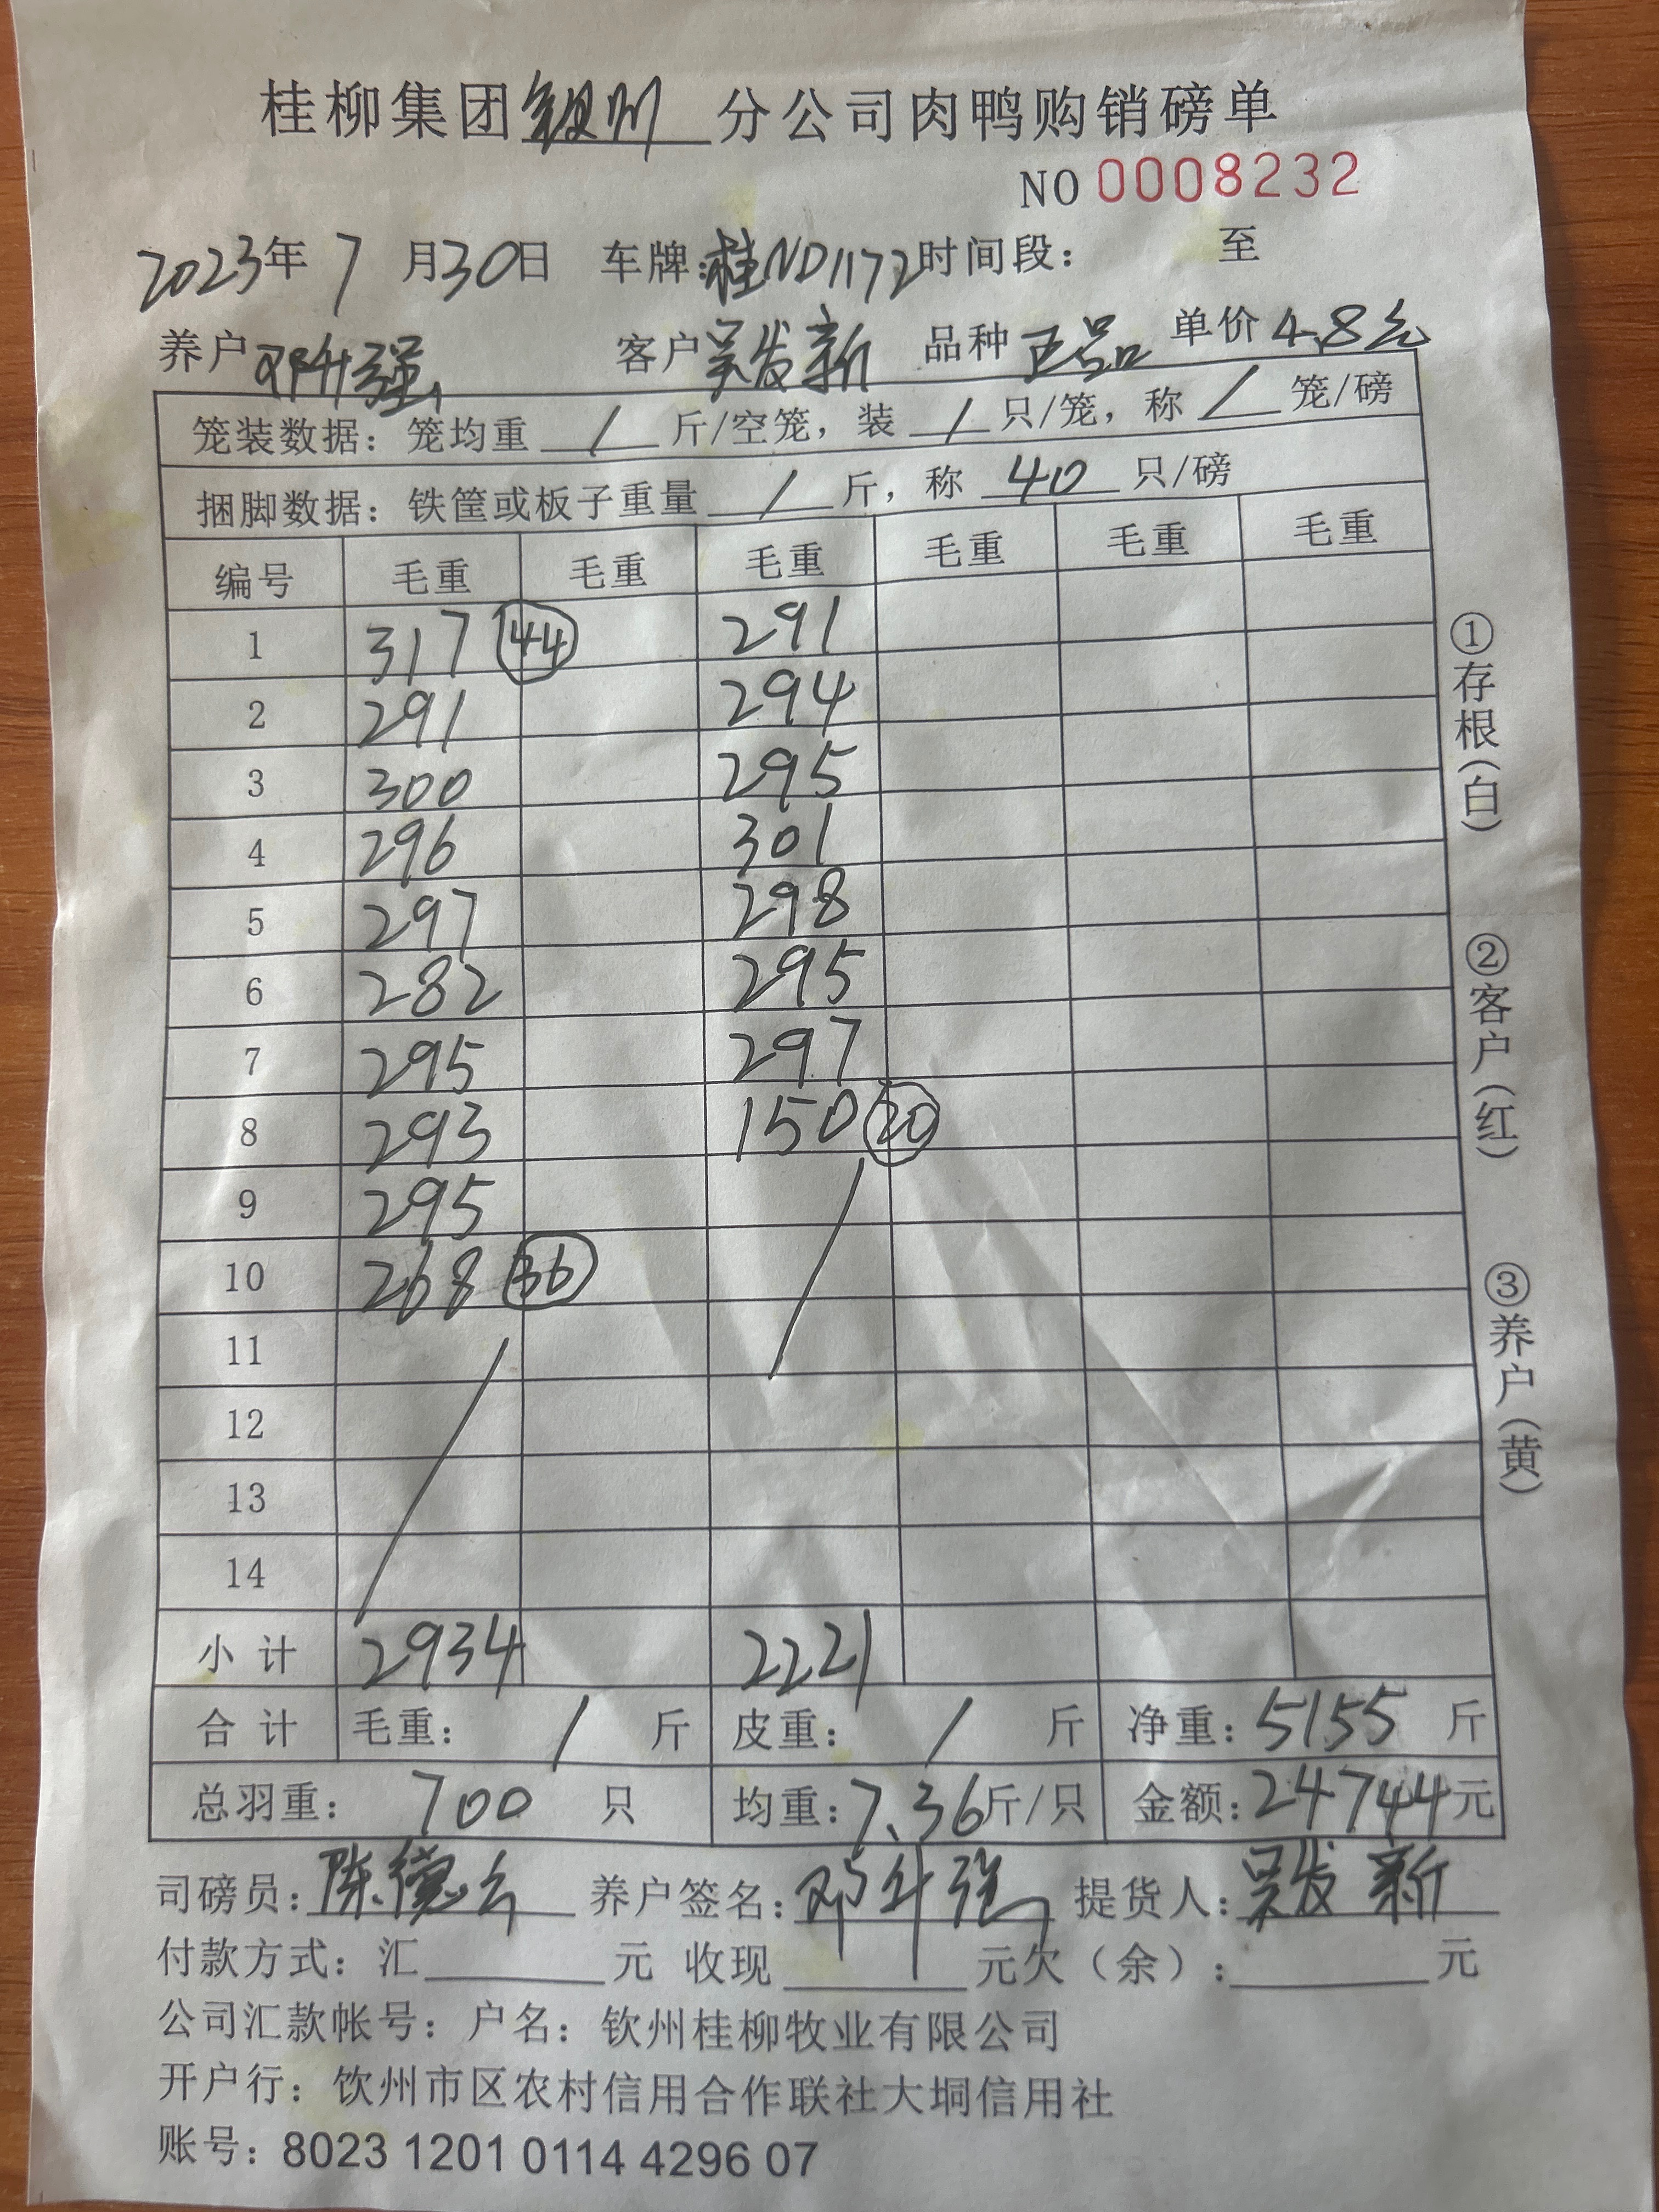 桂柳集团钦州分公司肉鸭购销磅单
NO 0008232
2023年 7 月30日 车牌:桂ND1172时间段: 至
养户邓升强 客户吴发新 品种正品 单价4.8元
笼装数据: 笼均重 / 斤/空笼, 装 / 只/笼, 称 / 笼/磅
捆脚数据: 铁筐或板子重量 / 斤, 称 40 只/磅
编号 毛重 毛重 毛重 毛重 毛重 毛重
1 317 44 291
2 291 294
3 300 295
4 296 301
5 297 298
6 282 295
7 295 297
8 293 150 20
9 295
10 268 36
11
12
13
14
小计 2934 2221
合计 毛重: / 斤 皮重: / 斤 净重: 5155 斤
总羽重: 700 只 均重: 7.36斤/只 金额: 24744元
司磅员: 陈德云 养户签名: 邓升强 提货人: 吴发新
付款方式: 汇 元 收现 元欠(余): 元
公司汇款帐号: 户名: 钦州桂柳牧业有限公司
开户行: 钦州市区农村信用合作联社大垌信用社
账号: 8023 1201 0114 4296 07
①存根(白)
②客户(红)
③养户(黄)